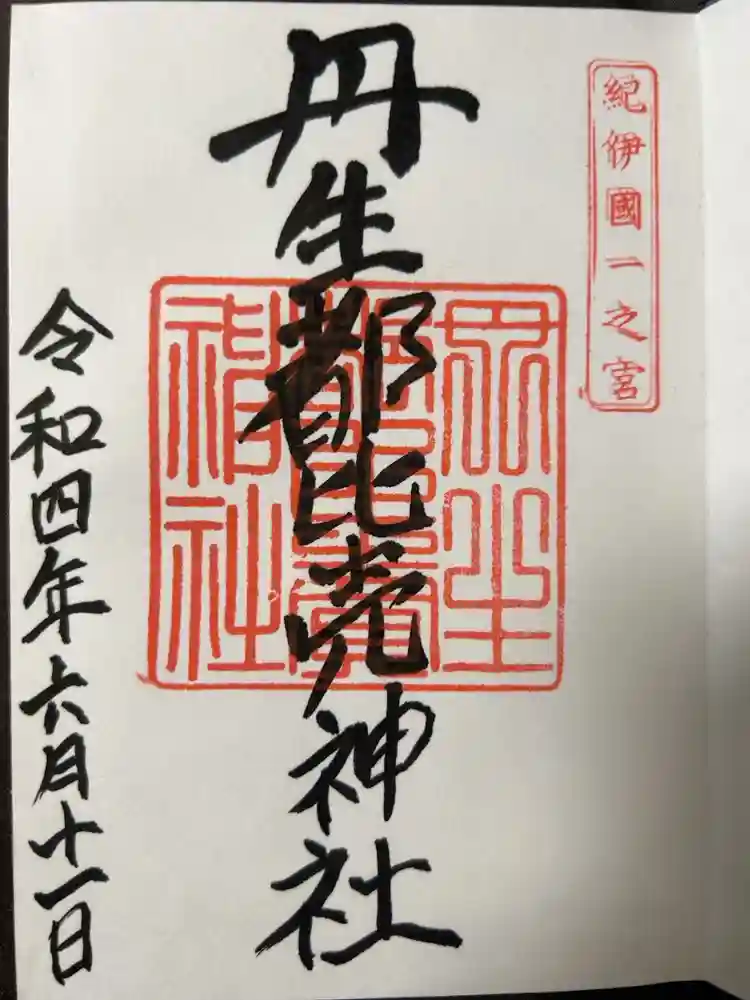 紀伊國一之宮
丹生都比売神社
丹生都比賣神社
令和四年六月十一日